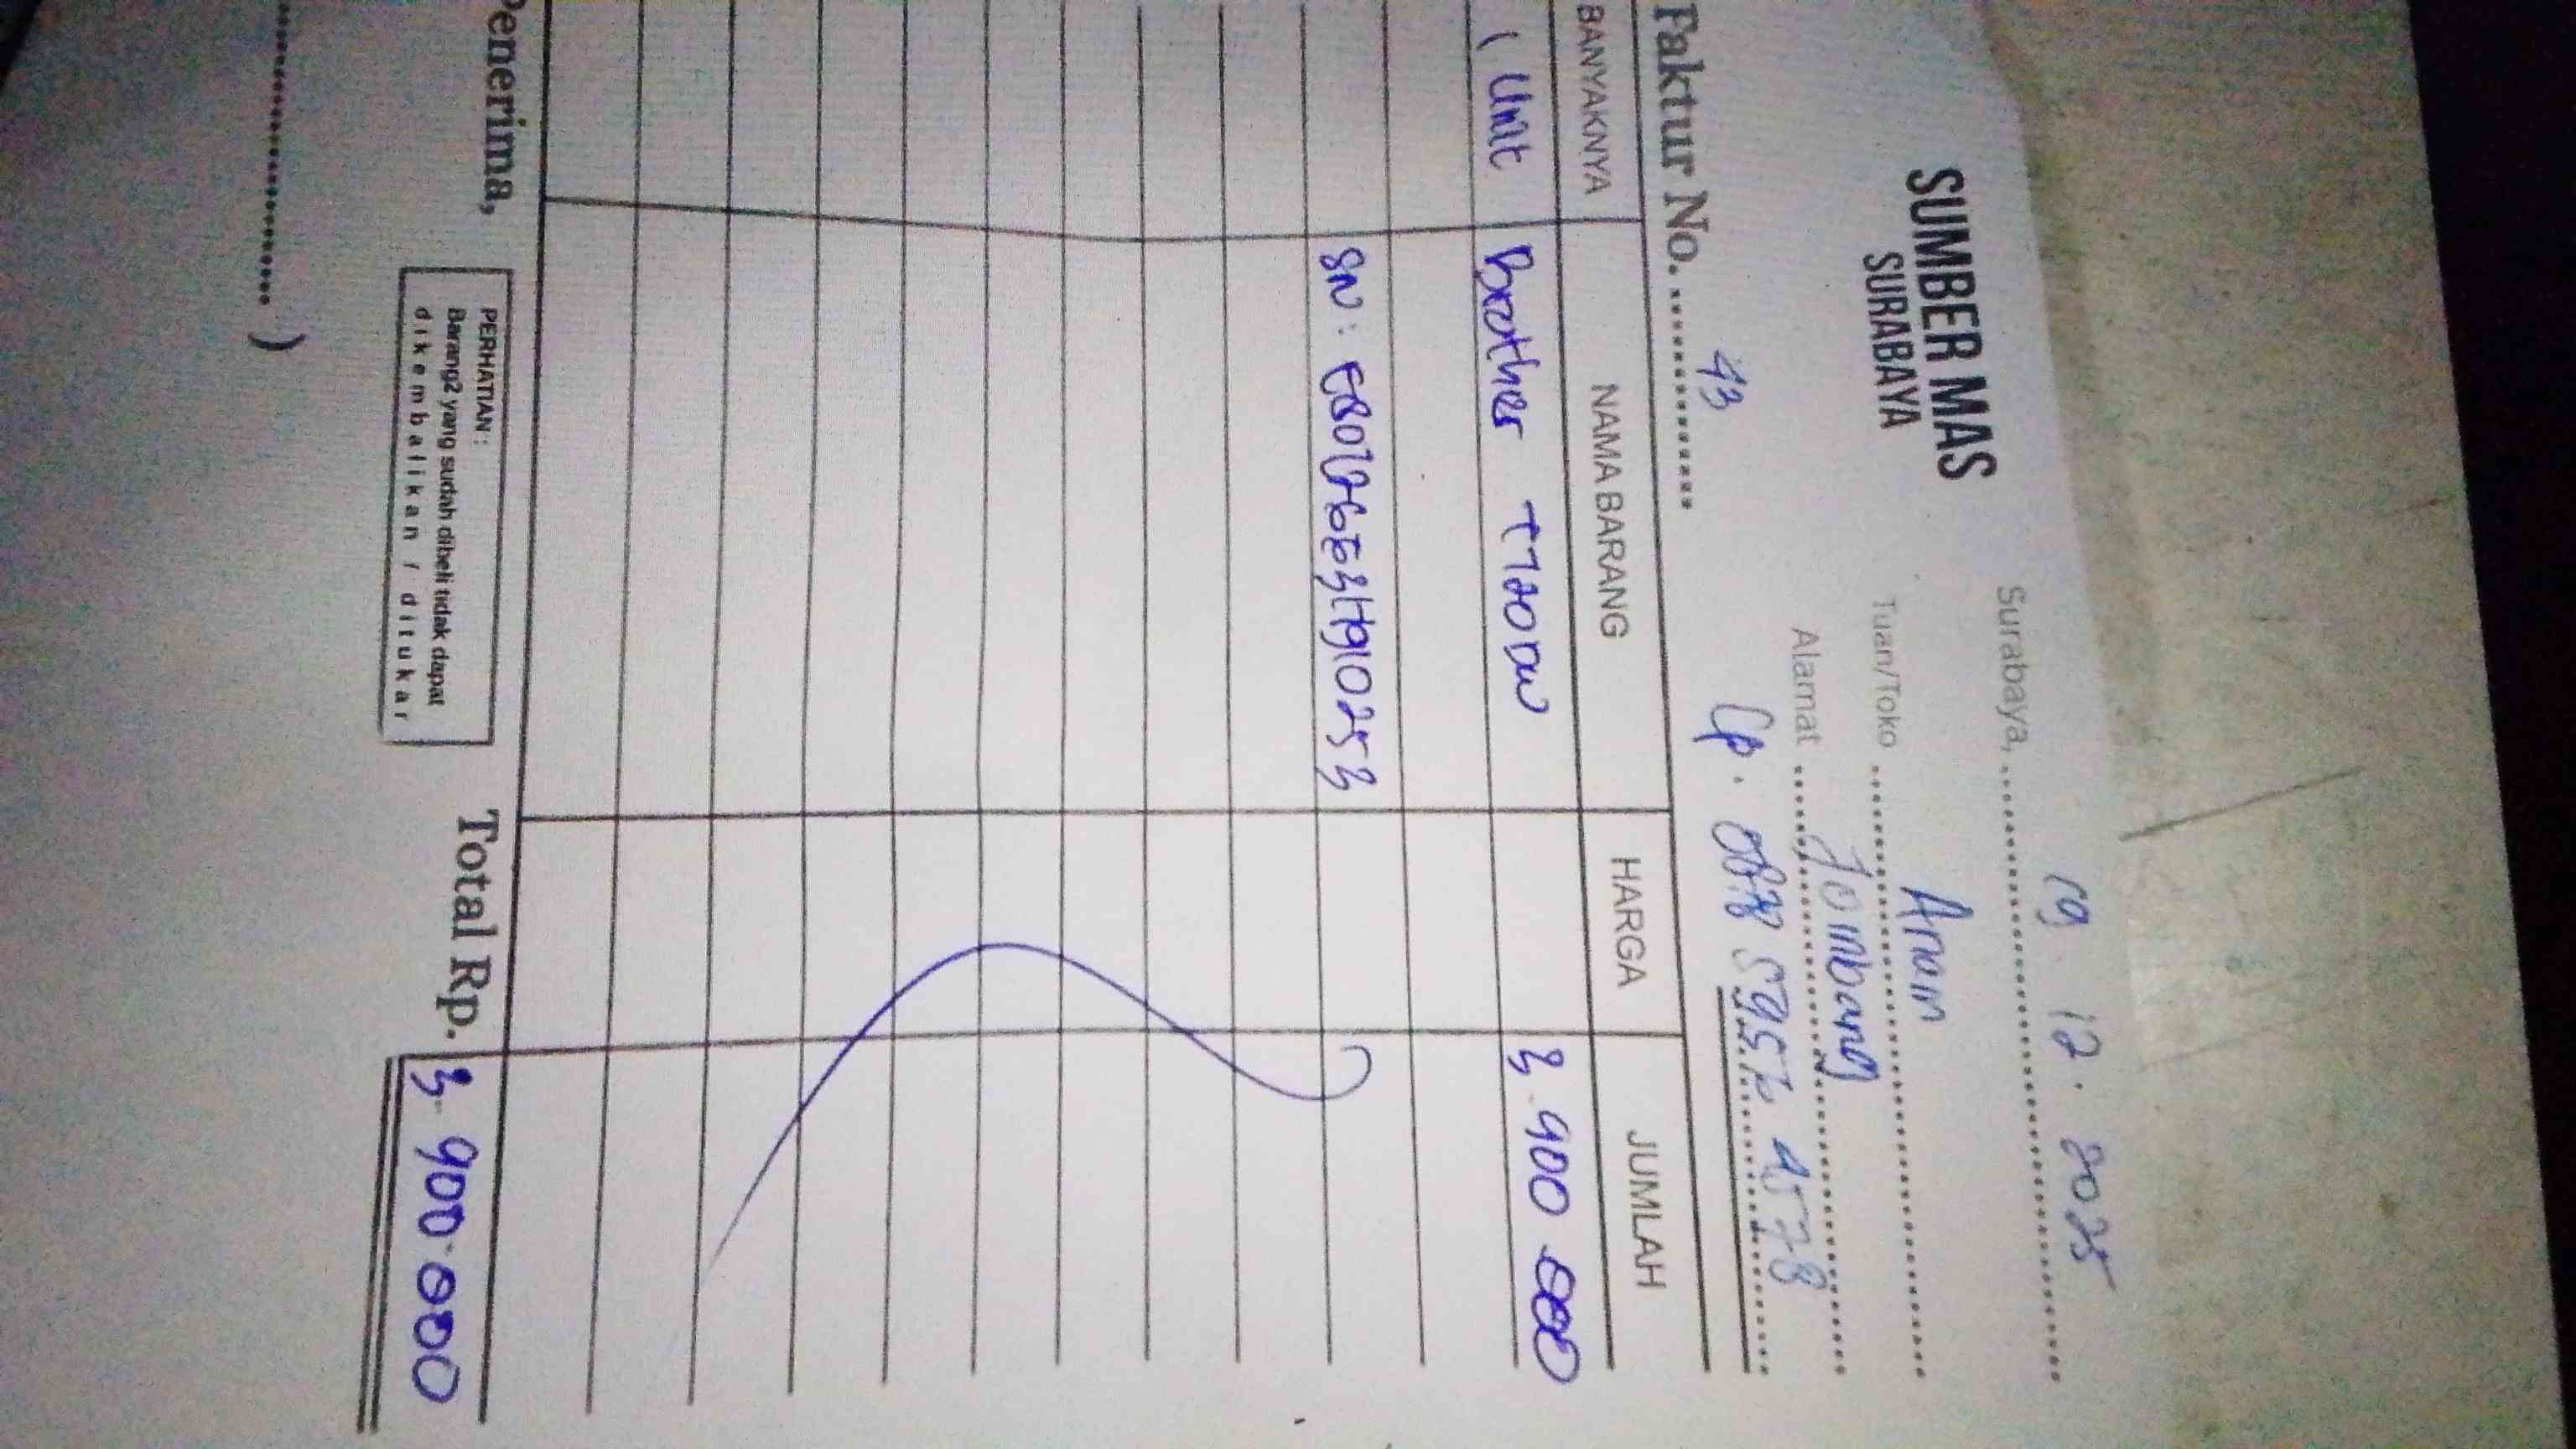 SUMBER MAS
SURABAYA
Surabaya, 19 . 12 . 2025
Tuan/Toko Anam
Alamat Jombang
Faktur No. 43
Cp.
BANYAKNYA NAMA BARANG HARGA JUMLAH
1 Unit Brother T720DW 3.900.000
Penerima,
PERHATIAN :
Barang2 yang sudah dibeli tidak dapat
dikembalikan / ditukar
Total Rp. 3.900.000
)